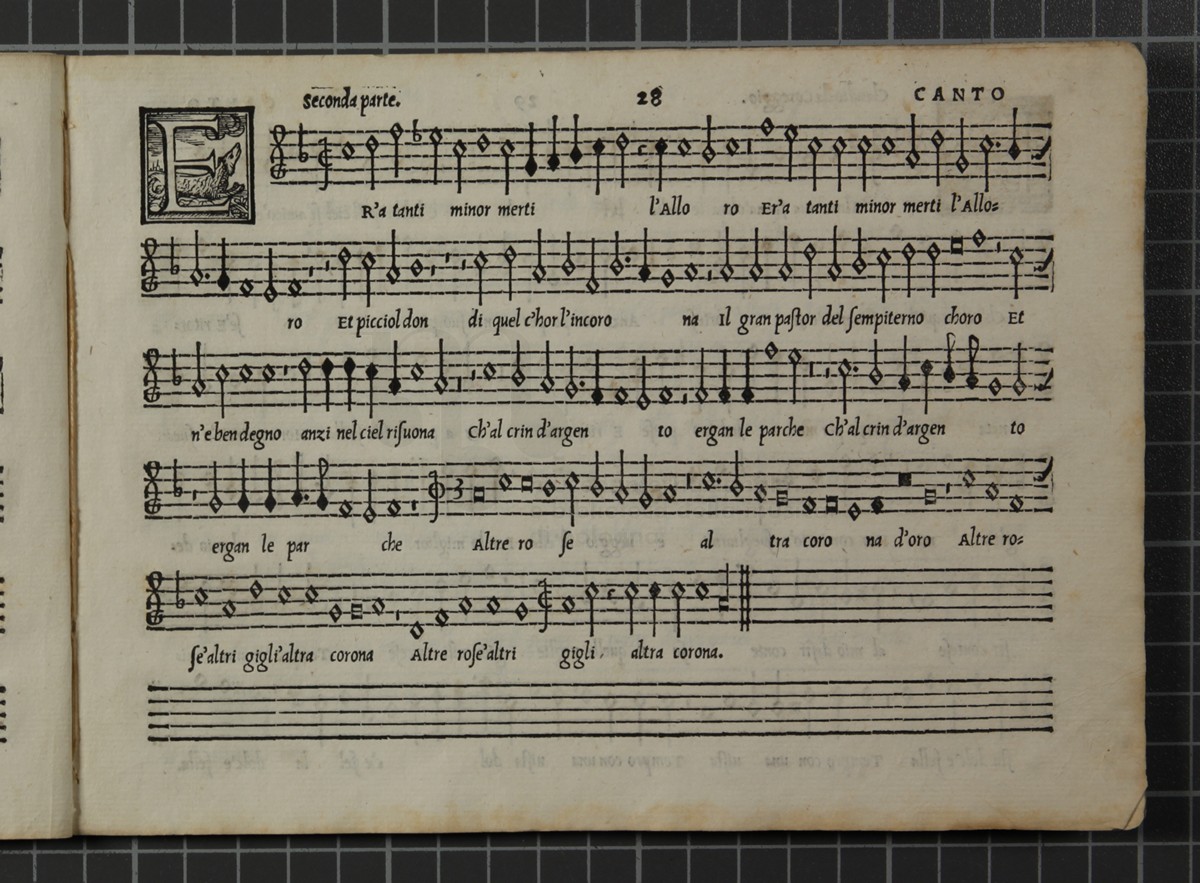 Seconda parte. 28 CANTO
ER'a tanti minor merti l'Allo ro Er'a tanti minor merti l'Allo=
ro Et picciol don di quel c'hor l'incoro na Il gran paſtor del ſempiterno choro Et
n'e ben degno anzi nel ciel riſuona Ch'al crin d'argen to ergan le parche Ch'al crin d'argen to
ergan le par che Altre ro ſe al tra coro na d'oro Altre ro=
ſe'altri gigli'altra corona Altre roſe'altri gigli altra corona.